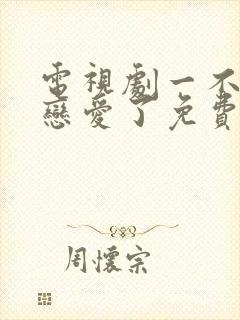 電視劇一不
戀愛了免費
周懷宗